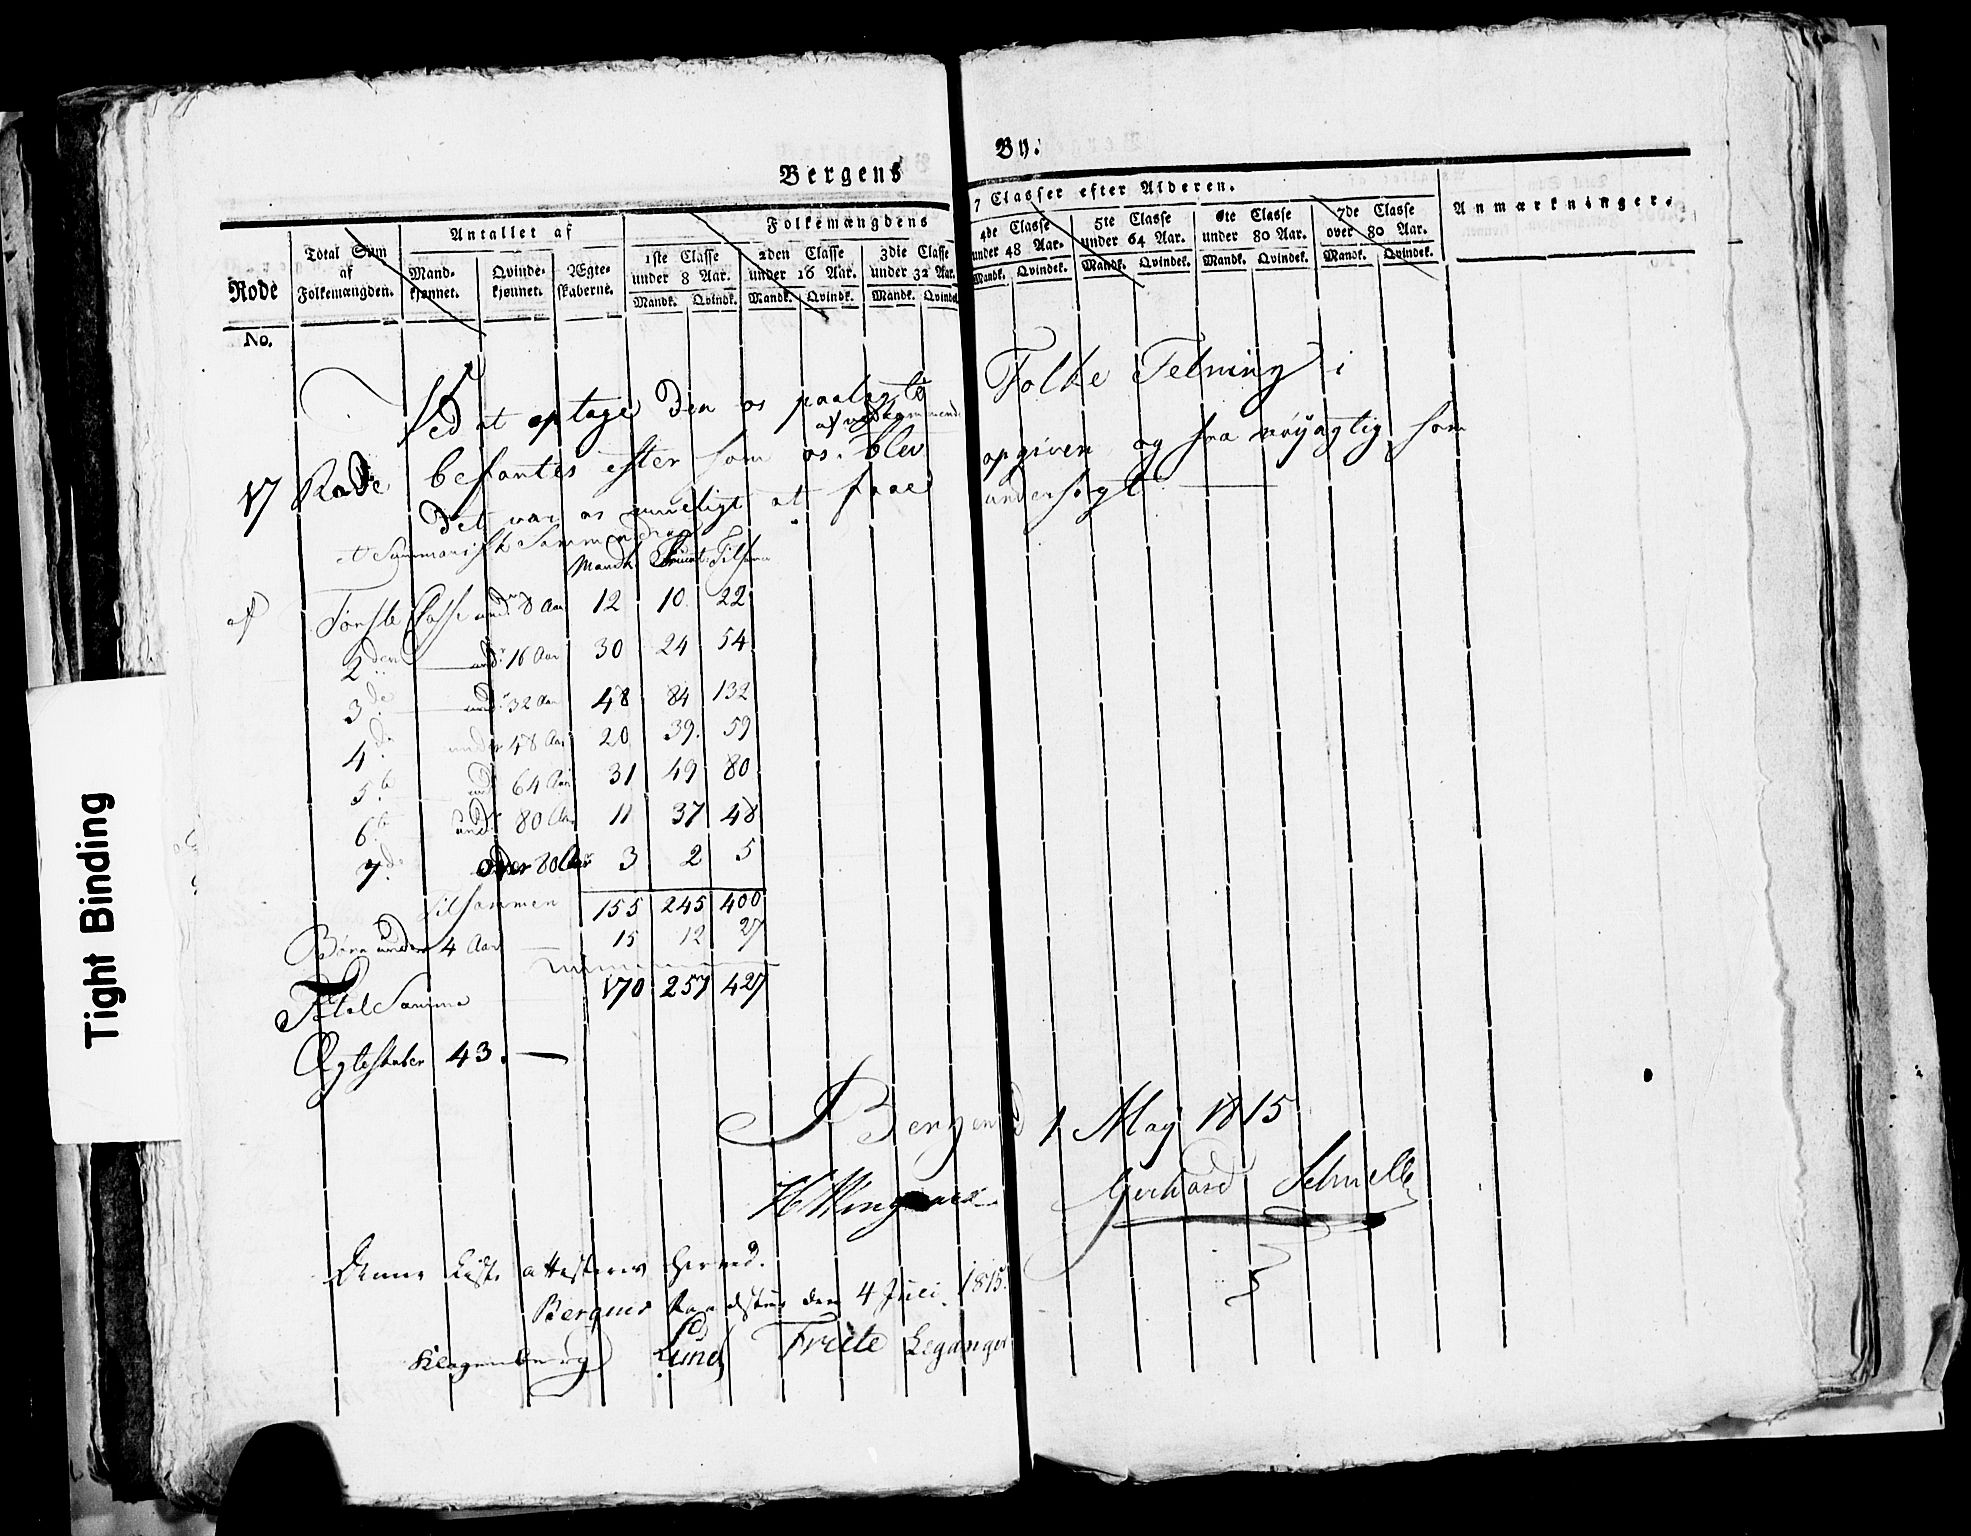 Bergens By.
Rode
No.
Total Sum
af
Folkemængden.
Antallet af
Mand-
kjønnet.
Qvinde-
kjønnet.
Ægte-
skaberne.
Folkemængdens 7 Classer efter Alderen.
1ste Classe
under 8 Aar.
2den Classe
under 16 Aar.
3die Classe
under 32 Aar.
4de Classe
under 48 Aar.
5te Classe
under 64 Aar.
6te Classe
under 80 Aar.
7de Classe
over 80 Aar.
Mandk. Qvindk. Mandk. Qvindk. Mandk. Qvindk. Mandk. Qvindk. Mandk. Qvindk. Mandk. Qvindk. Mandk. Qvindk.
Anmærkninger.
Ved at optage den os paalagte Folke Telning i
af vedkommende
17 Rode befantes efter som os blev opgiven og saa nöyagtig som
det var os mueligt at faae undersögt
et Summarisk Sammendrag
Mandk. Qvindk. Tilsamen
af Første Classe und. 8 Aar 12 10 22
2den und. 16 Aar 30 24 54
3de und. 32 Aar 48 84 132
4de under 48 Aar 20 39 59
5te und. 64 Aar 31 49 80
6te und. 80 Aar 11 37 48
7de over 80 Aar 3 2 5
Tilsammen 155 245 400
Børn under 4 Aar 15 12 27
Total Summa 170 257 427
Ægteskaber 43.
Bergen d 1 May 1815
Gerhard Schnelle
Denne Liste attesteres herved.
Bergens Raadstue den 4 Juli 1815.
Klagenberg Lund Friele Leganger
Tight Binding